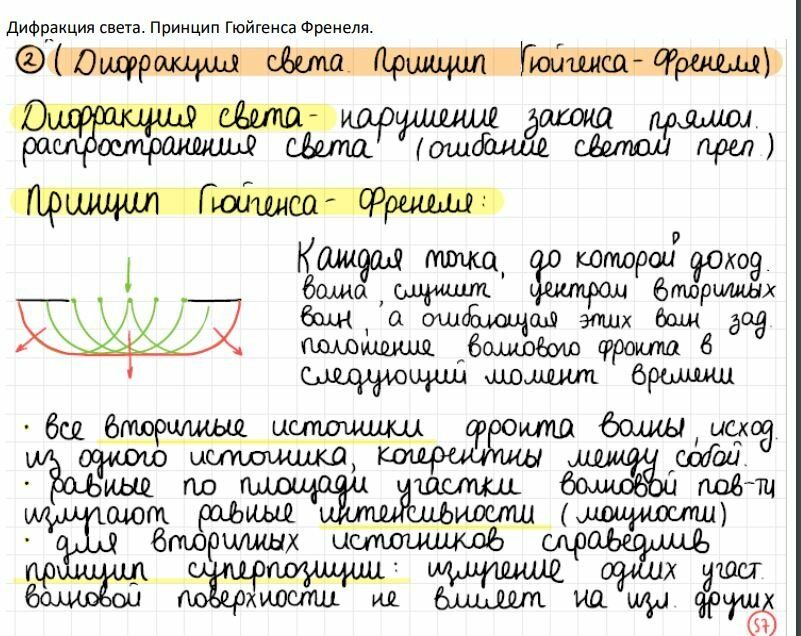 Дифракция света. Принцип Гюйгенса Френеля.
② (Дифракция света. Принцип Гюйгенса-Френеля)
Дифракция света- нарушение закона прямол.
распространения света (огибание светом преп.)
Принцип Гюйгенса- Френеля:
Каждая точка, до которой доход.
волна, служит центром вторичных
волн, а огибающая этих волн зад.
положение волнового фронта в
следующий момент времени
· все вторичные источники фронта волны, исход.
из одного источника, когерентны между собой.
· равные по площади участки волновой пов-ти
излучают равные интенсивности (мощности)
· для вторичных источников справедлив
принцип суперпозиции: излучение одних участ.
волновой поверхности не влияет на изл. других
57